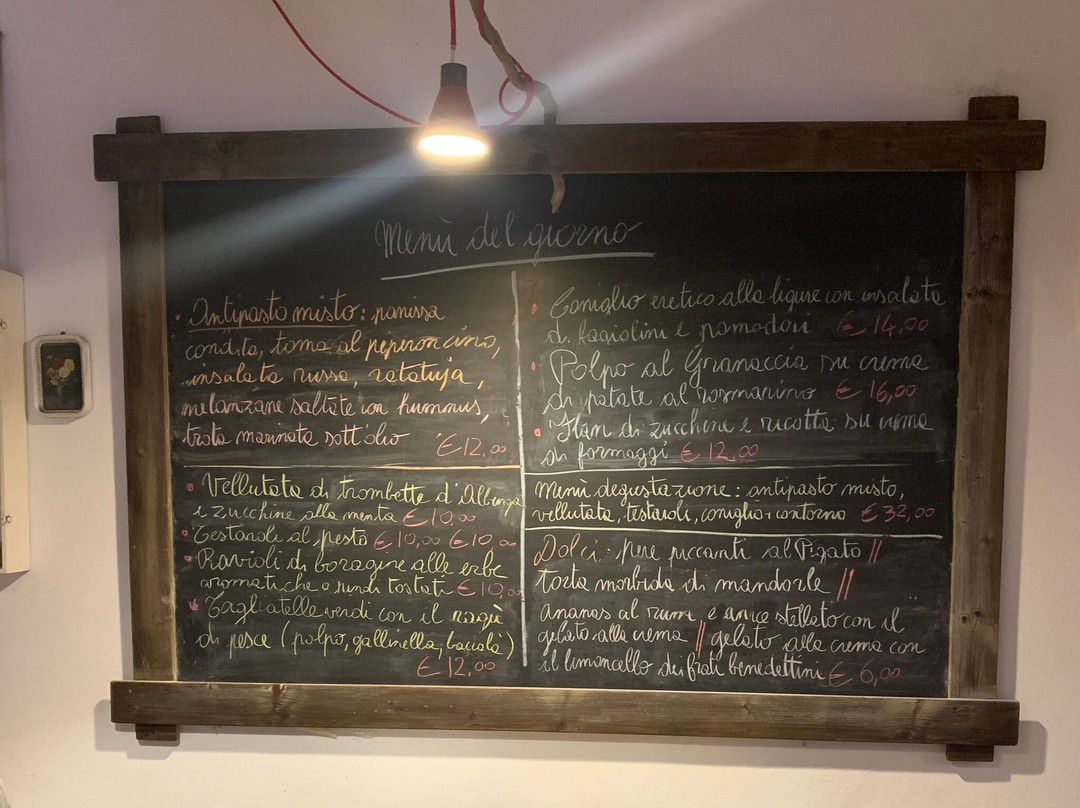 Menù del giorno
• Antipasto misto: panissa
condita, toma al peperoncino,
insalata russa, ratatuja,
melanzane saltate con hummus,
trota marinata sott'olio €12,00
• Vellutata di trombette d'Albenga
e zucchine alla menta €10,00
• Testaroli al pesto €10,00 €10,00
• Ravioli di boragine alle erbe
aromatiche o rundi tostati €10,00
• Tagliatelle verdi con il ragù
di pesce (polpo, gallinella,
€12,00
• Coniglio eretico alla ligure con insalata
di fagiolini e pomodori €14,00
• Polpo al Granaccia su crema
di patate al rosmarino €16,00
• Flan di zucchine e ricotta su crema
di formaggi €12,00
Menù degustazione: antipasto misto,
vellutata, testaroli, coniglio+contorno €32,00
Dolci: pere piccanti al Pigato //
torta morbida di mandorle //
ananas al rum e anice stellato con il
gelato alla crema // gelato alla crema con
il limoncello dei frati benedettini € 6,00